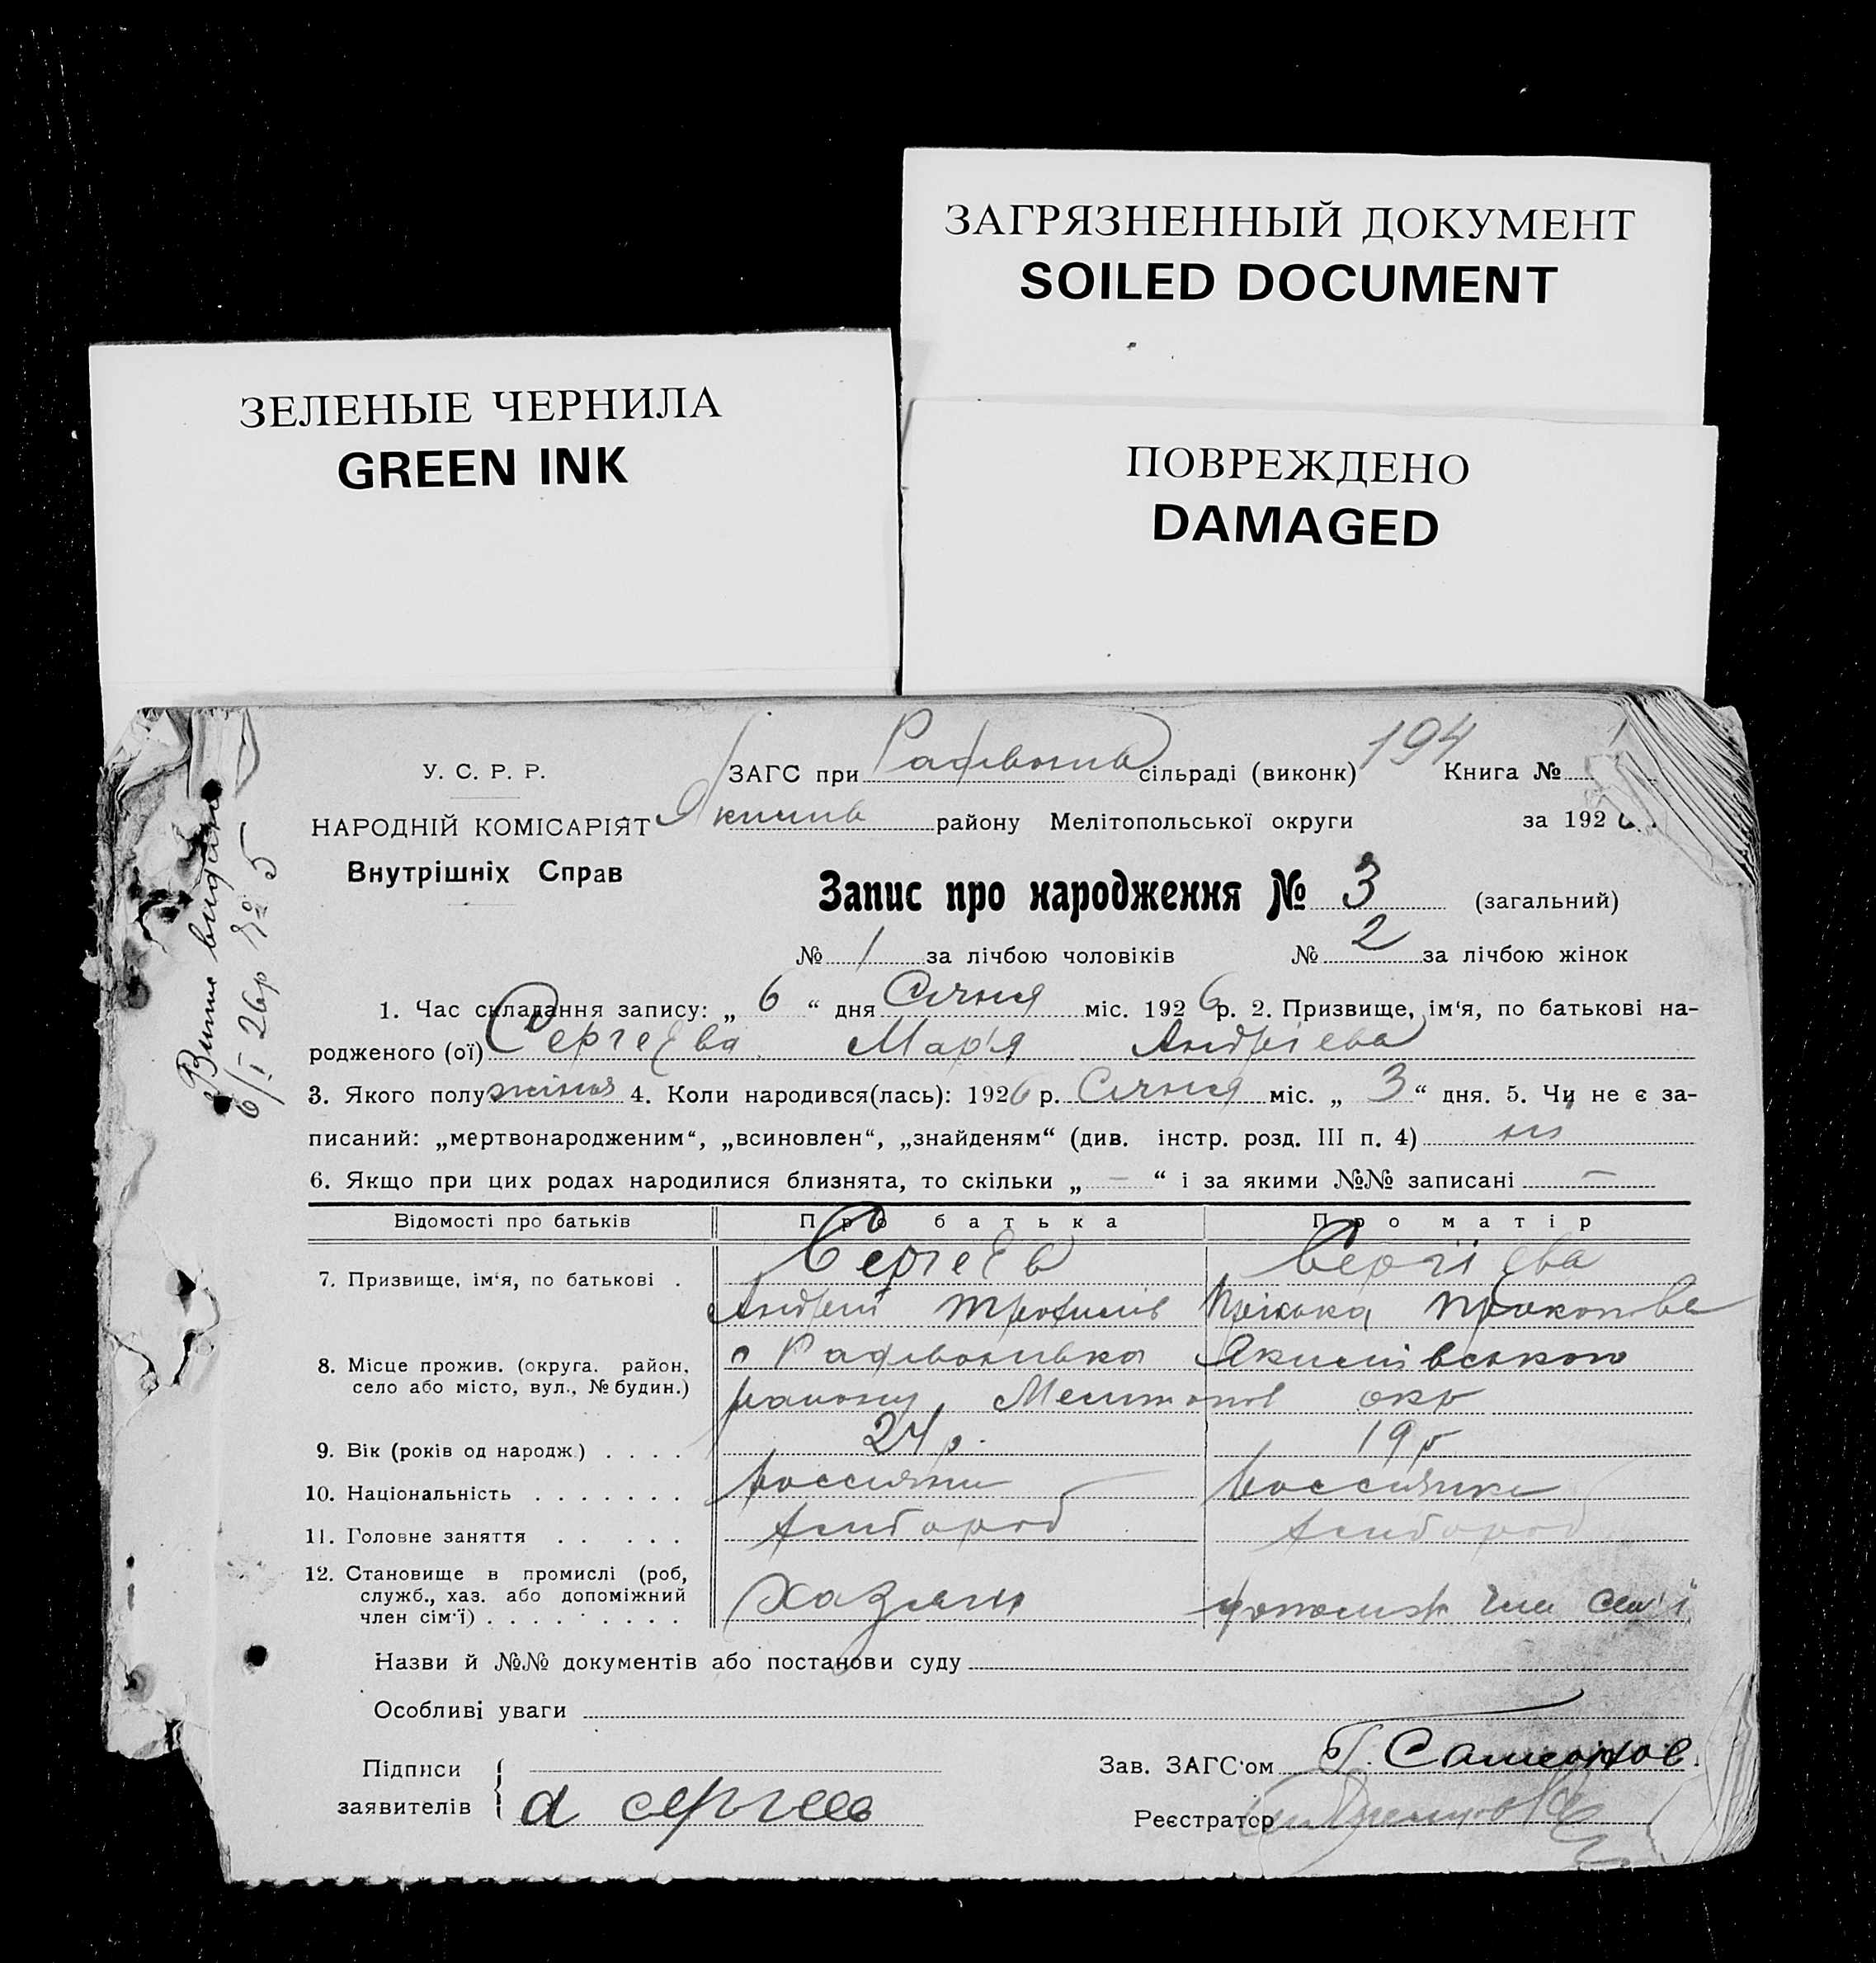 ЗАГРЯЗНЕННЫЙ ДОКУМЕНТ
SOILED DOCUMENT
ЗЕЛЕНЫЕ ЧЕРНИЛА
GREEN INK
ПОВРЕЖДЕНО
DAMAGED
194
У. С. Р. Р.
НАРОДНІЙ КОМІСАРІЯТ
Внутрішніх Справ
ЗАГС при сільраді (виконк) Книга №
Якимів району Мелітопольської округи за 1926
Запис про народження № 3 (загальний)
№ 1 за лічбою чоловіків № 2 за лічбою жінок
6/I 26р № 5
1. Час складання запису: „ 6 “ дня Січня міс. 1926 р. 2. Призвище, ім‘я, по батькові на-
родженого (ої) Сергеєва Мар'я Андрієва
3. Якого полу жіноя 4. Коли народився(лась): 1926 р. Січня міс. „ 3 “ дня. 5. Чи не є за-
писаний: „мертвонародженим“, „всиновлен“, „знайденям“ (див. інстр. розд. III п. 4) ні
6. Якщо при цих родах народилися близнята, то скільки „ — “ і за якими №№ записані —
Відомості про батьків Про батька Про матір
7. Призвище, ім‘я, по батькові . Сергеєв Сергієва
Андрей Трофимів Прокопова
8. Місце прожив. (округа. район, Якимівського
село або місто, вул., № будин.) району Мелитопол окр
9. Вік (років од народж.) . . . . 24 р. 19 р
10. Національність . . . . . . .
11. Головне заняття . . . . . хлібороб хлібороб
12. Становище в промислі (роб,
служб., хаз. або допоміжний
член сім‘ї) . . . . . . . . . Хазяин допоміж член сем'ї
Назви й №№ документів або постанови суду
Особливі уваги
Підписи
заявителів а сергеев
Зав. ЗАГС‘ом
Реєстратор